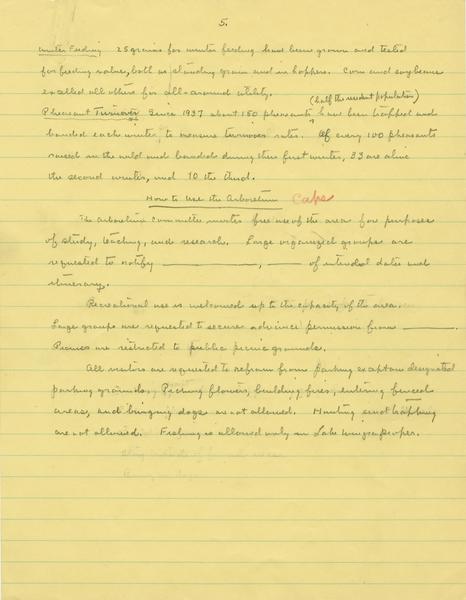 5.
Winter Feeding 25 grains for winter feeding have been grown and tested
for feeding value, both as standing grain and in hoppers. Corn and soybeans
excelled all others for all-around utility.
(half the resident population)
Pheasant Turnover Since 1937 about 150 pheasants have been trapped and
banded each winter to measure turnover rates. Of every 100 pheasants
raised in the wild and banded during their first winter, 33 are alive
the second winter, and 10 the third.
How to Use the Arboretum Caps
The arboretum committee invites free use of the area for purposes
of study, teaching, and research. Large organized groups are
requested to notify ________, ____ of intended dates and
itinerary.
Recreational use is welcomed up to the capacity of the area.
Large groups are requested to secure advance permission from ________.
Picnics are restricted to public picnic grounds.
All visitors are requested to refrain from parking except on designated
parking grounds. Picking flowers, building fires, entering fenced
areas, and bringing dogs are not allowed. Hunting and trapping
are not allowed. Fishing is allowed only in Lake Wingra proper.